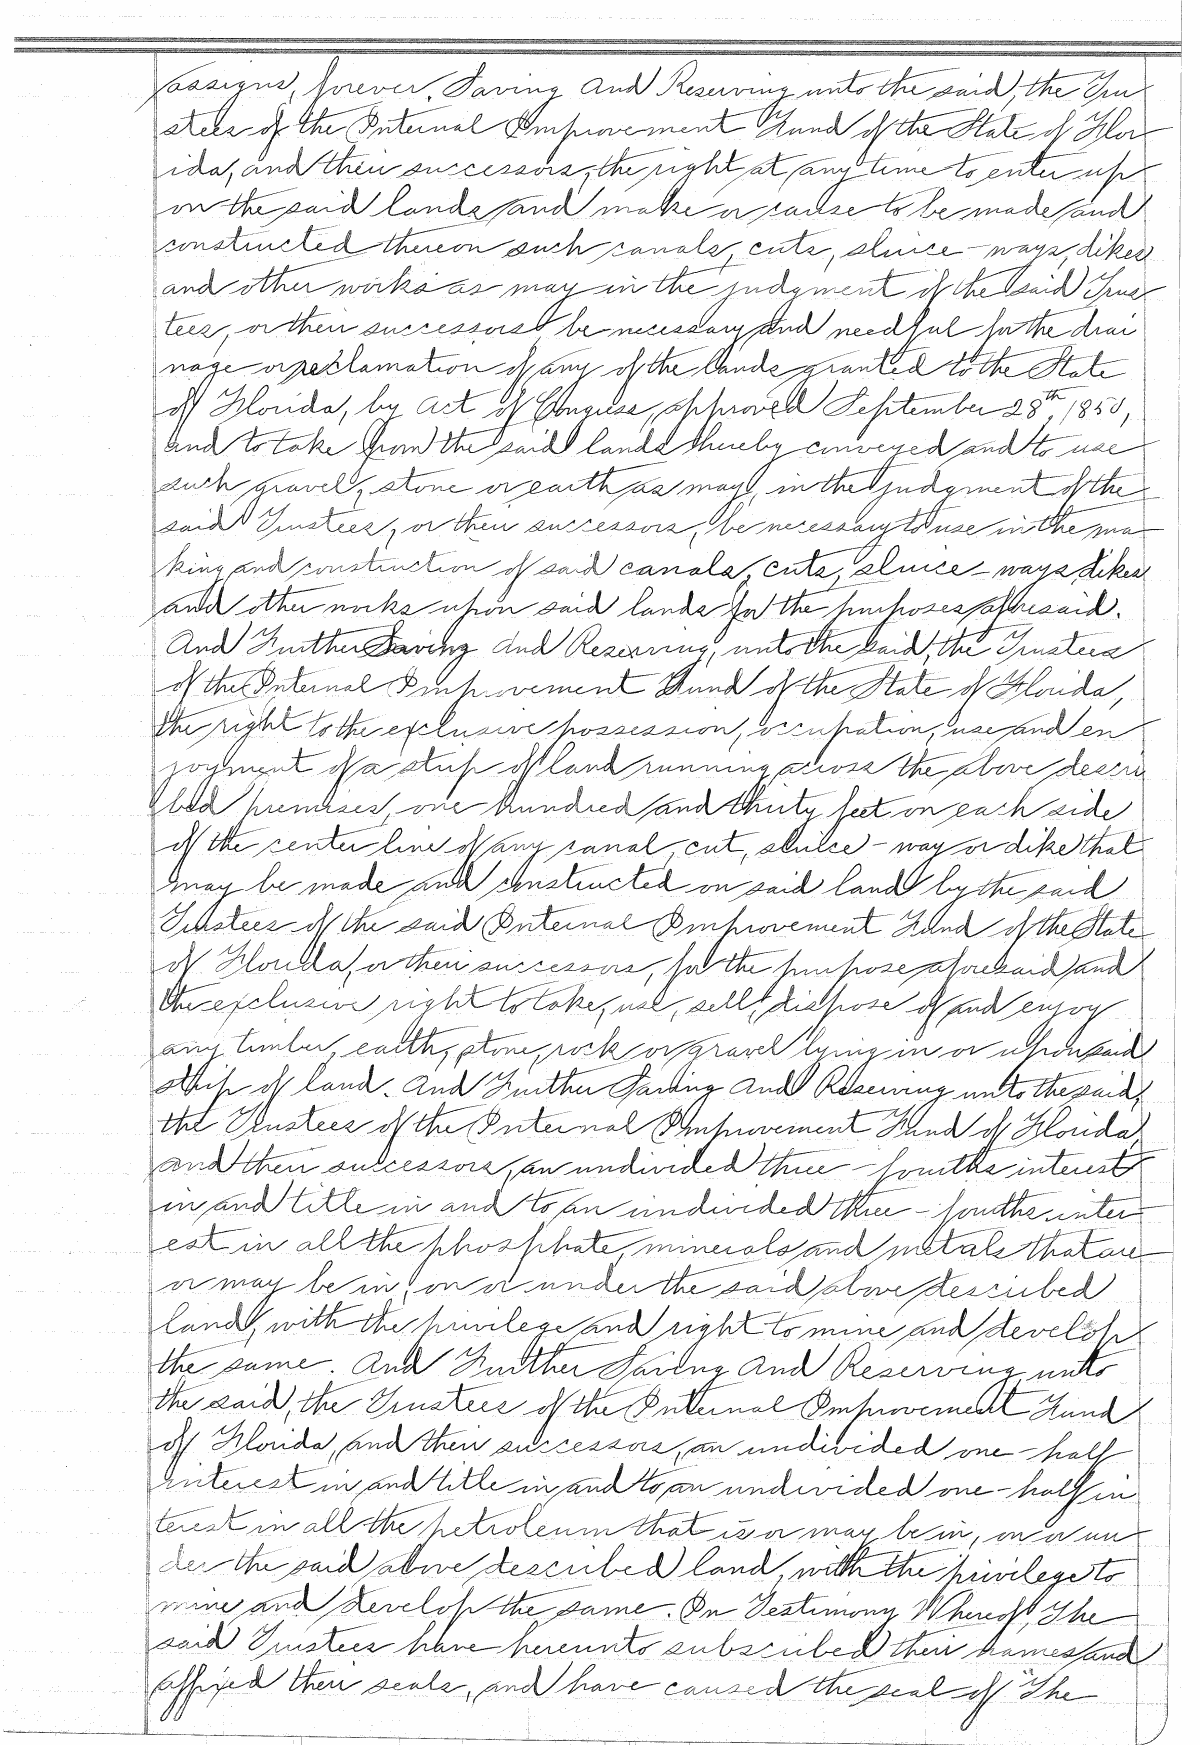 assigns, forever. Saving And Reserving unto the said, the Tru
stees of the Internal Improvement Fund of the State of Flor
ida, and their successors, the right at any time to enter up
on the said lands and make or cause to be made and
constructed thereon such canals, cuts, sluice-ways, dikes
and other works as may in the judgment of the said Trus
tees, or their successors be necessary and needful for the drai
nage or reclamation of any of the lands granted to the State
of Florida, by Act of Congress, approved September 28th, 1850,
and to take from the said lands hereby conveyed and to use
such gravel, stone or earth as may, in the judgment of the
said Trustees, or their successors, be necessary to use in the ma
king and construction of said canals, cuts, sluice-ways, dikes
and other works upon said lands for the purposes aforesaid.
And Further Saving And Reserving, unto the said, the Trustees
of the Internal Improvement Fund of the State of Florida,
the right to the exclusive possession, occupation, use and en
joyment of a strip of land running across the above descri
bed premises, one hundred and thirty feet on each side
of the center line of any canal, cut, sluice-way or dike that
may be made and constructed on said land by the said
Trustees of the said Internal Improvement Fund of the State
of Florida, or their successors, for the purpose aforesaid and
the exclusive right to take, use, sell, dispose of and enjoy
any timber, earth, stone, rock or gravel lying in or upon said
strip of land. And Further Saving And Reserving unto the said,
the Trustees of the Internal Improvement Fund of Florida,
and their successors, an undivided three-fourths interest
in and title in and to an undivided three-fourths inter
est in all the phosphate, minerals and metals that are
or may be in, on or under the said above described
land, with the privilege and right to mine and develop
the same. And Further Saving And Reserving unto
the said, the Trustees of the Internal Improvement Fund
of Florida, and their successors, an undivided one-half
interest in and title in and to an undivided one-half in
terest in all the petroleum that is or may be in, on or un
der the said above described land, with the privilege to
mine and develop the same. In Testimony Whereof, The
said Trustees have hereunto subscribed their names and
affixed their seals, and have caused the seal of "The